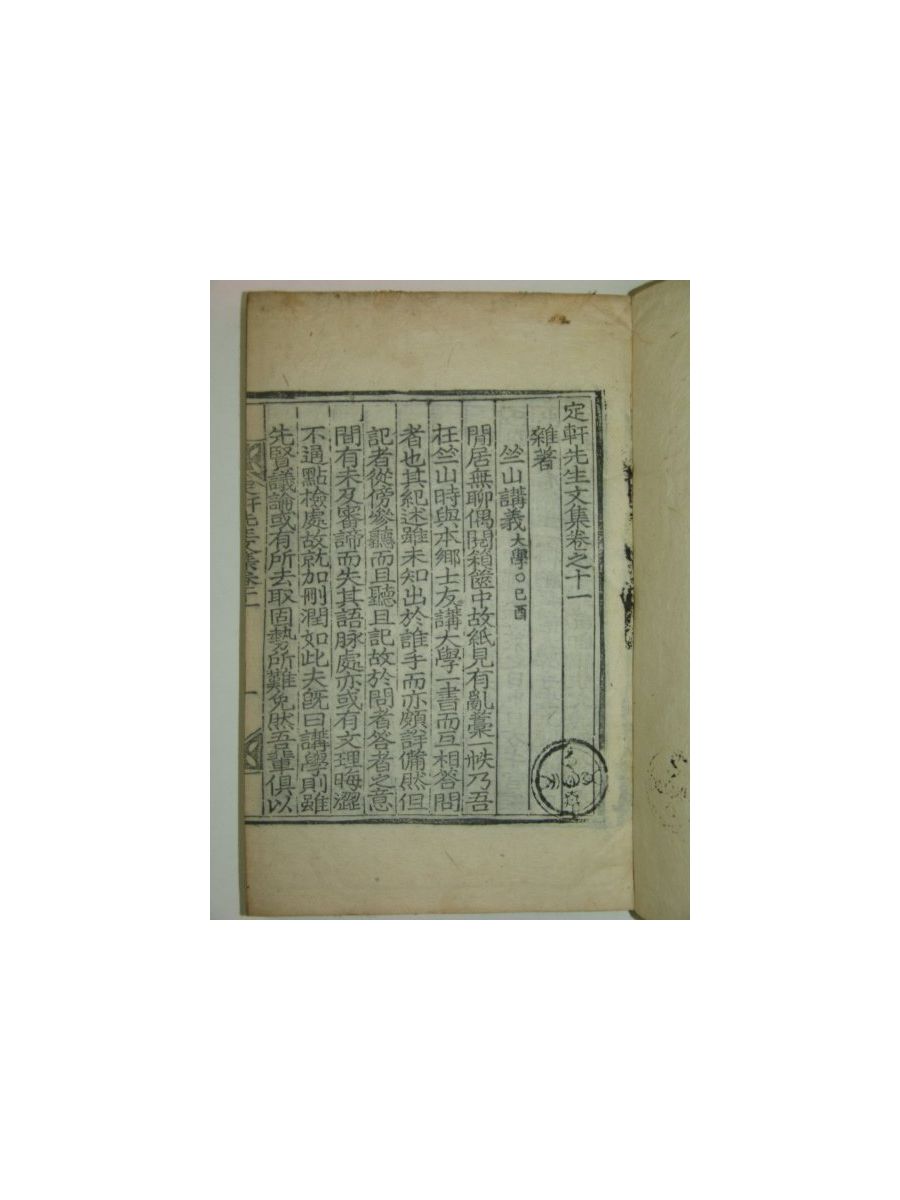 定軒先生文集卷之十一
雜著
竺山講義大學○己酉
閒居無聊偶閱箱篋中故紙見有亂藁一帙乃吾
在竺山時與本鄕士友講大學一書而互相答問
者也其紀述雖未知出於誰手而亦頗詳備然但
記者從傍參聽而且聽且記故於問者答者之意
間有未及審諦而失其語脉處亦或有文理晦澀
不過點檢處故就加刪潤如此夫旣曰講學則雖
先賢議論或有所去取固勢所難免然吾輩俱以
定軒先生文集卷十一
一